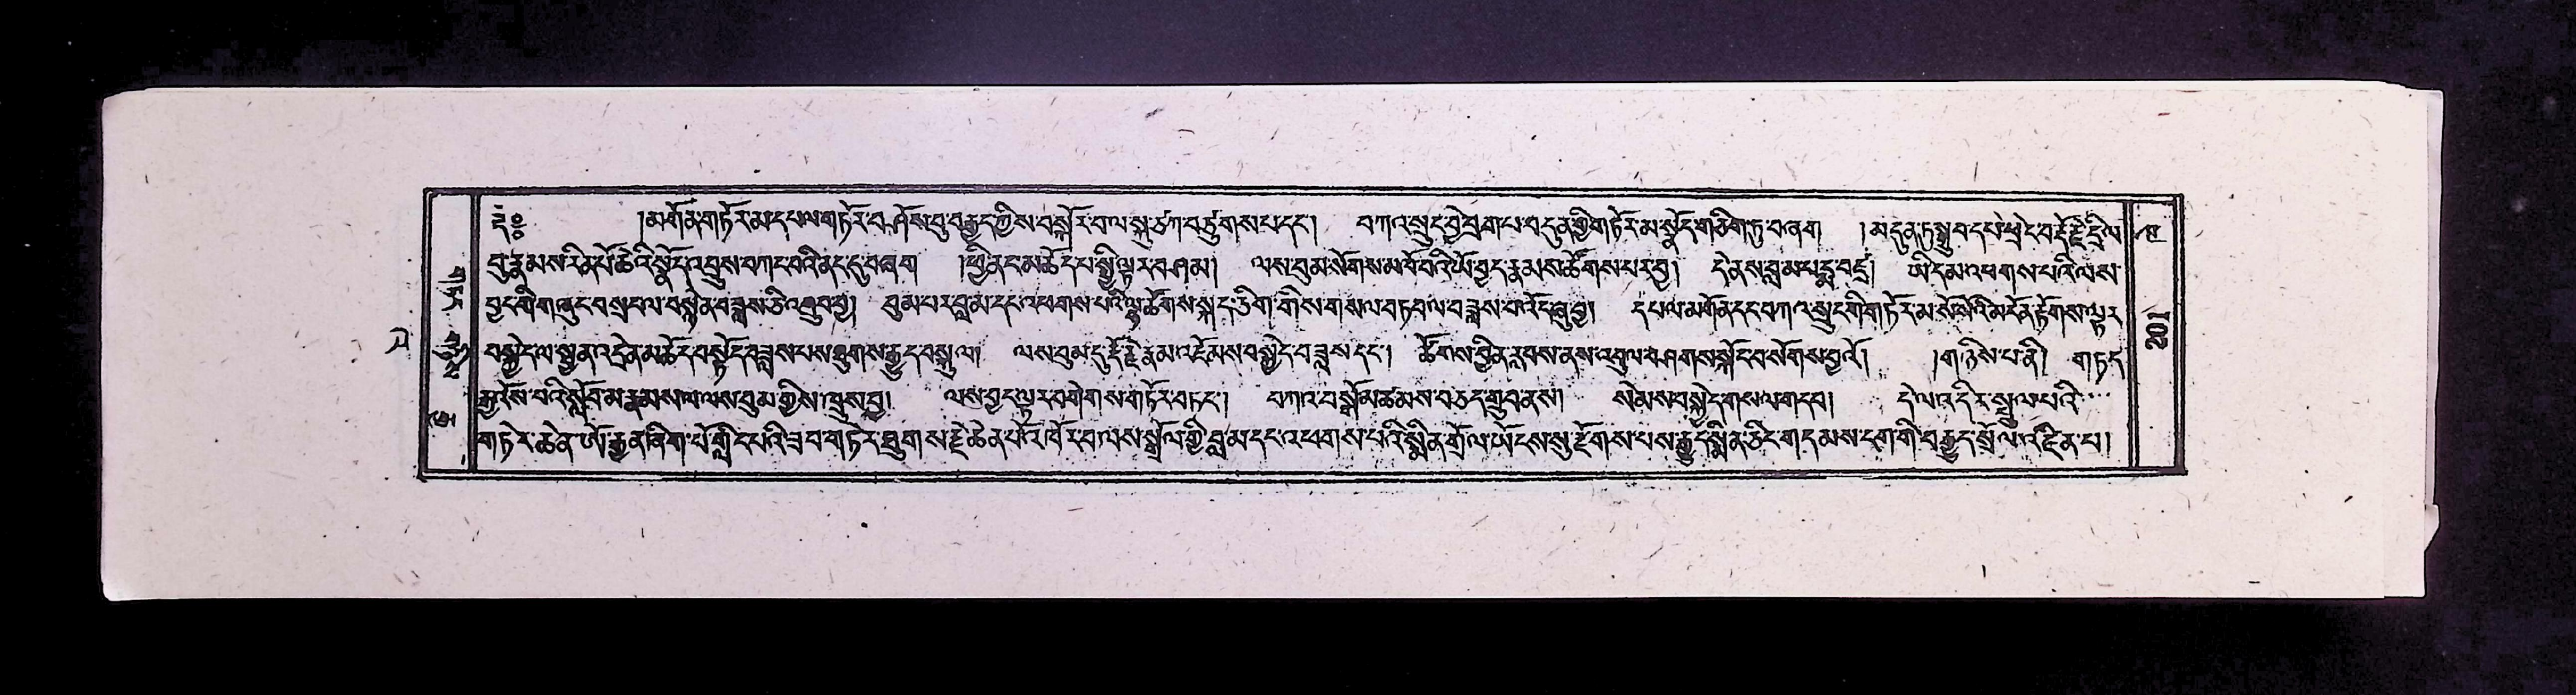 ༄༅། །མགོན་གཏོར་མ་དཔལ་གཏོར་བ་ཤོས་བུ་བརྒྱད་ཀྱིས་བསྐོར་བ་ལ་སྐུ་ཙཀ་བཙུགས་པ་དང༌། བཀའ་སྲུང་བྱེ་བྲག་པ་བདུན་གྱི་གཏོར་མ་སྣོད་གཅིག་ཏུ་བཞག །མདུན་ཏུ་སྒྲུབ་དཔེ་ཕྲེང་བ་རྡོ་རྗེ་དྲིལ་
བུ་རྣམས་རིན་པོ་ཆེའི་སྣོད་འབྲུས་བཀང་བའི་ནང་དུ་བཞག །ཕྱི་ནང་མཆོད་པ་སྤྱི་ལྟར་བཤམ། ལས་བུམ་སོགས་མཁོ་བའི་ཡོ་བྱད་རྣམས་ཚོགས་པར་བྱ། དེ་ནས་བླ་མ་པདྨ་བཛྲ། ཡི་དམ་འཕགས་པའི་ལས་
བྱང་གི་གཞུང་བསྲངས་ལ་བསྙེན་བཟླས་ཅི་འགྲུབ་བྱ། བུམ་པར་བླ་མ་དང་འཕགས་པའི་ལྷ་ཚོགས་སྐད་ཅིག་གིས་གསལ་བཏབ་ལ་བཟླས་བ་འདོན་བྱ། དཔལ་མགོན་དང་བཀའ་སྲུང་གི་གཏོར་མ་སོ་སོའི་མངོན་རྟོགས་ལྟར་
བསྐྱེད་ལ་སྤྱན་འདྲེན་མཆོད་བསྟོད་བཟླས་པས་ཐུགས་རྒྱུད་བསྐུལ། ལས་བུམ་དུ་རྡོ་རྗེ་རྣམ་འཇོམས་བསྐྱེད་བཟླས་དང༌། ཚོགས་བྱིན་རླབས་ནས་འབུལ་བཤགས་སྐོང་བ་སོགས་བྱའོ། །གཉིས་པ་ནི། གཏད་
རྒྱ་འོས་པའི་སློབ་མ་རྣམས་ལ་ལས་བུམ་གྱིས་ཁྲུས་བྱ། ལས་བྱང་ལྟར་བགེགས་གཏོར་བཏང༌། བཀའ་བསྒོ་མཚམས་བཅད་གྲུབ་ནས། སེམས་བསྐྱེད་གསལ་གདབ། དེ་ལ་འདིར་སྤྲུལ་པའི་
གཏེར་ཆེན་ཨོ་རྒྱན་ཞིག་པོ་གླིང་པའི་ཟབ་གཏེར་ཐུགས་རྗེ་ཆེན་པོ་འཁོར་བ་ལས་སྒྲོལ་གྱི་བླ་མ་དང་འཕགས་པའི་སྨིན་གྲོལ་ཡོངས་སུ་རྫོགས་པས་རྒྱུད་སྨིན་ཅིང་གདམས་ངག་གི་བརྒྱུད་སྲོལ་འཛིན་པ།